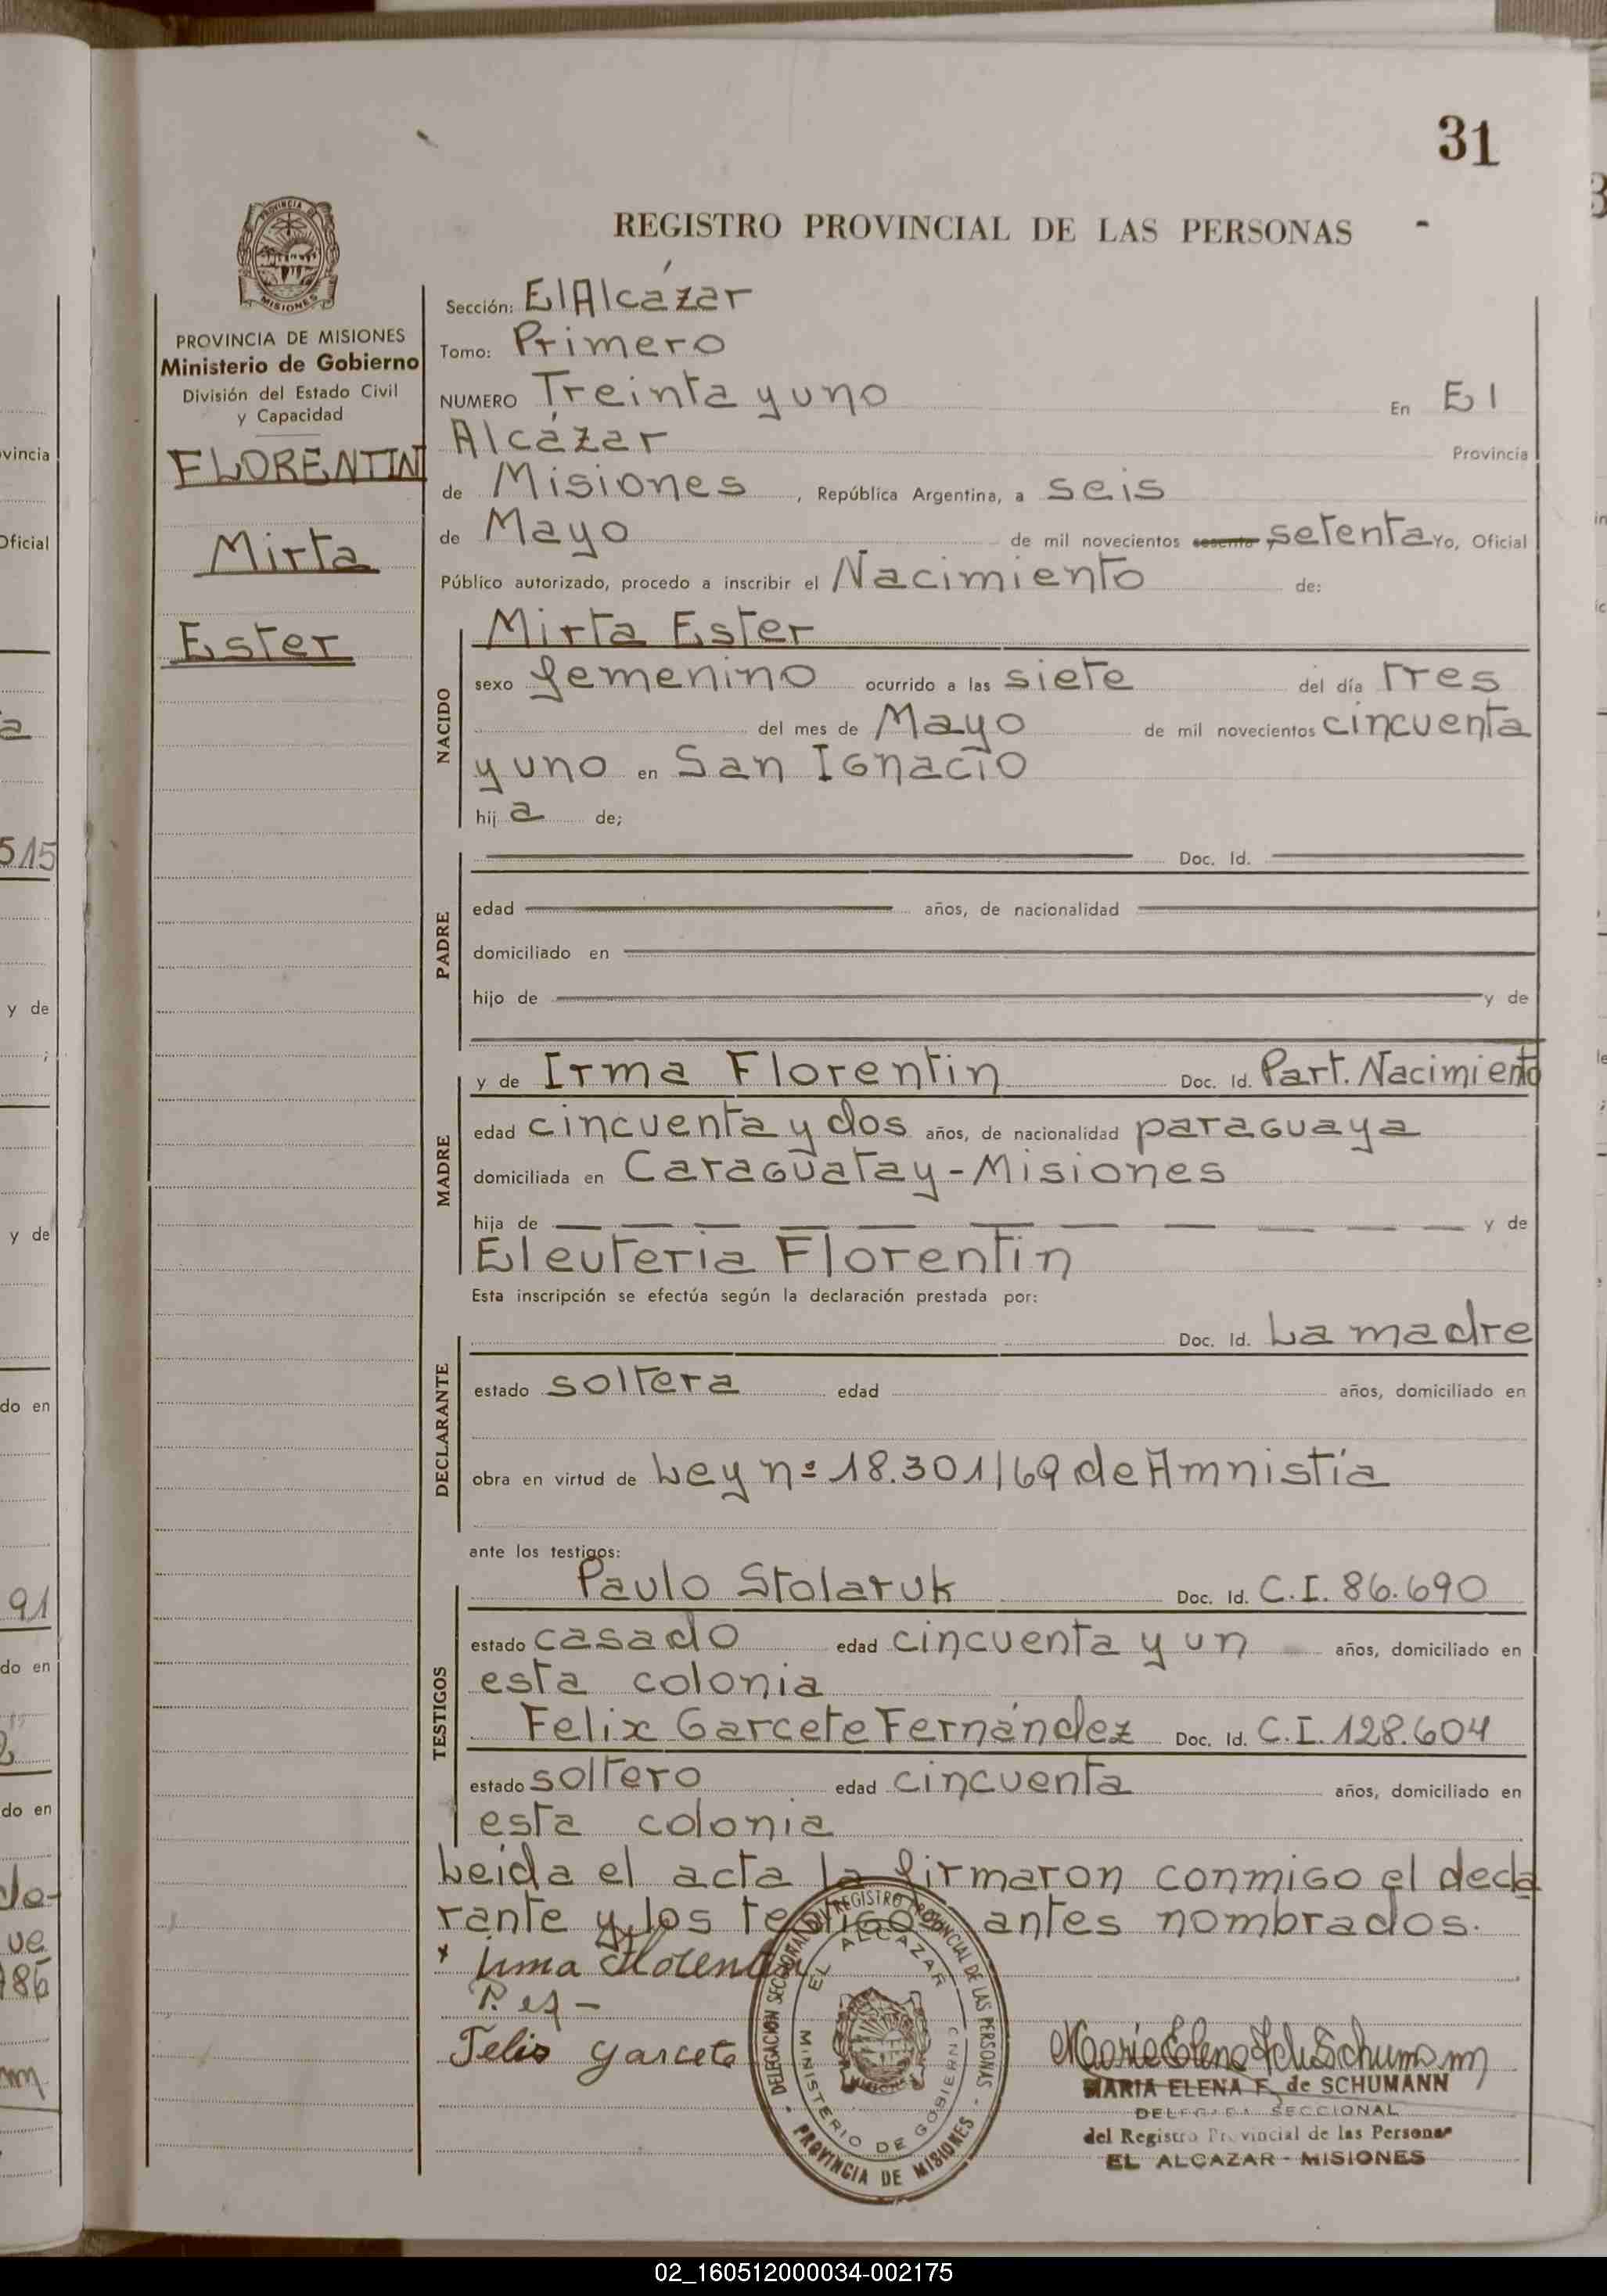 31
REGISTRO PROVINCIAL DE LAS PERSONAS
PROVINCIA DE MISIONES
Ministerio de Gobierno
División del Estado Civil
y Capacidad
FLORENTIN
Mirta
Ester
Sección: El Alcázar
Tomo: Primero
NUMERO Treinta y uno En El
Alcázar Provincia
de Misiones, República Argentina, a seis
de Mayo de mil novecientos sesenta y setenta Yo, Oficial
Público autorizado, procedo a inscribir el Nacimiento de:
NACIDO
Mirta Ester
sexo femenino ocurrido a las siete del día tres
del mes de Mayo de mil novecientos cincuenta
y uno en San Ignacio
hija de;
PADRE
Doc. Id.
edad años, de nacionalidad
domiciliado en
hijo de y de
MADRE
y de Irma Florentin Doc. Id. Part. Nacimiento
edad cincuenta y dos años, de nacionalidad paraguaya
domiciliada en Caraguatay - Misiones
hija de — — — — — — — — — — — y de
Eleuteria Florentin
Esta inscripción se efectúa según la declaración prestada por:
DECLARANTE
Doc. Id. La madre
estado soltera edad años, domiciliado en
obra en virtud de Ley nº 18.301/69 de Amnistía
ante los testigos:
TESTIGOS
Paulo Stolaruk Doc. Id. C.I. 86.690
estado casado edad cincuenta y un años, domiciliado en
esta colonia
Felix Garcete Fernández Doc. Id. C.I. 128.604
estado soltero edad cincuenta años, domiciliado en
esta colonia
Leida el acta la firmaron conmigo el decla
rante y los testigos antes nombrados.
x Irma Florentin
Felix Garcete
DELEGACION SECCIONAL DEL REGISTRO PROVINCIAL DE LAS PERSONAS
EL ALCAZAR
MINISTERIO DE GOBIERNO
MISIONES
- PROVINCIA DE MISIONES -
Maria Elena F de Schumann
MARIA ELENA F. de SCHUMANN
DELEGADA SECCIONAL
del Registro Provincial de las Personas
EL ALCAZAR - MISIONES
vincia
Oficial
a
515
y de
y de
do en
91
do en
do en
do-
ue
186
02_160512000034-002175